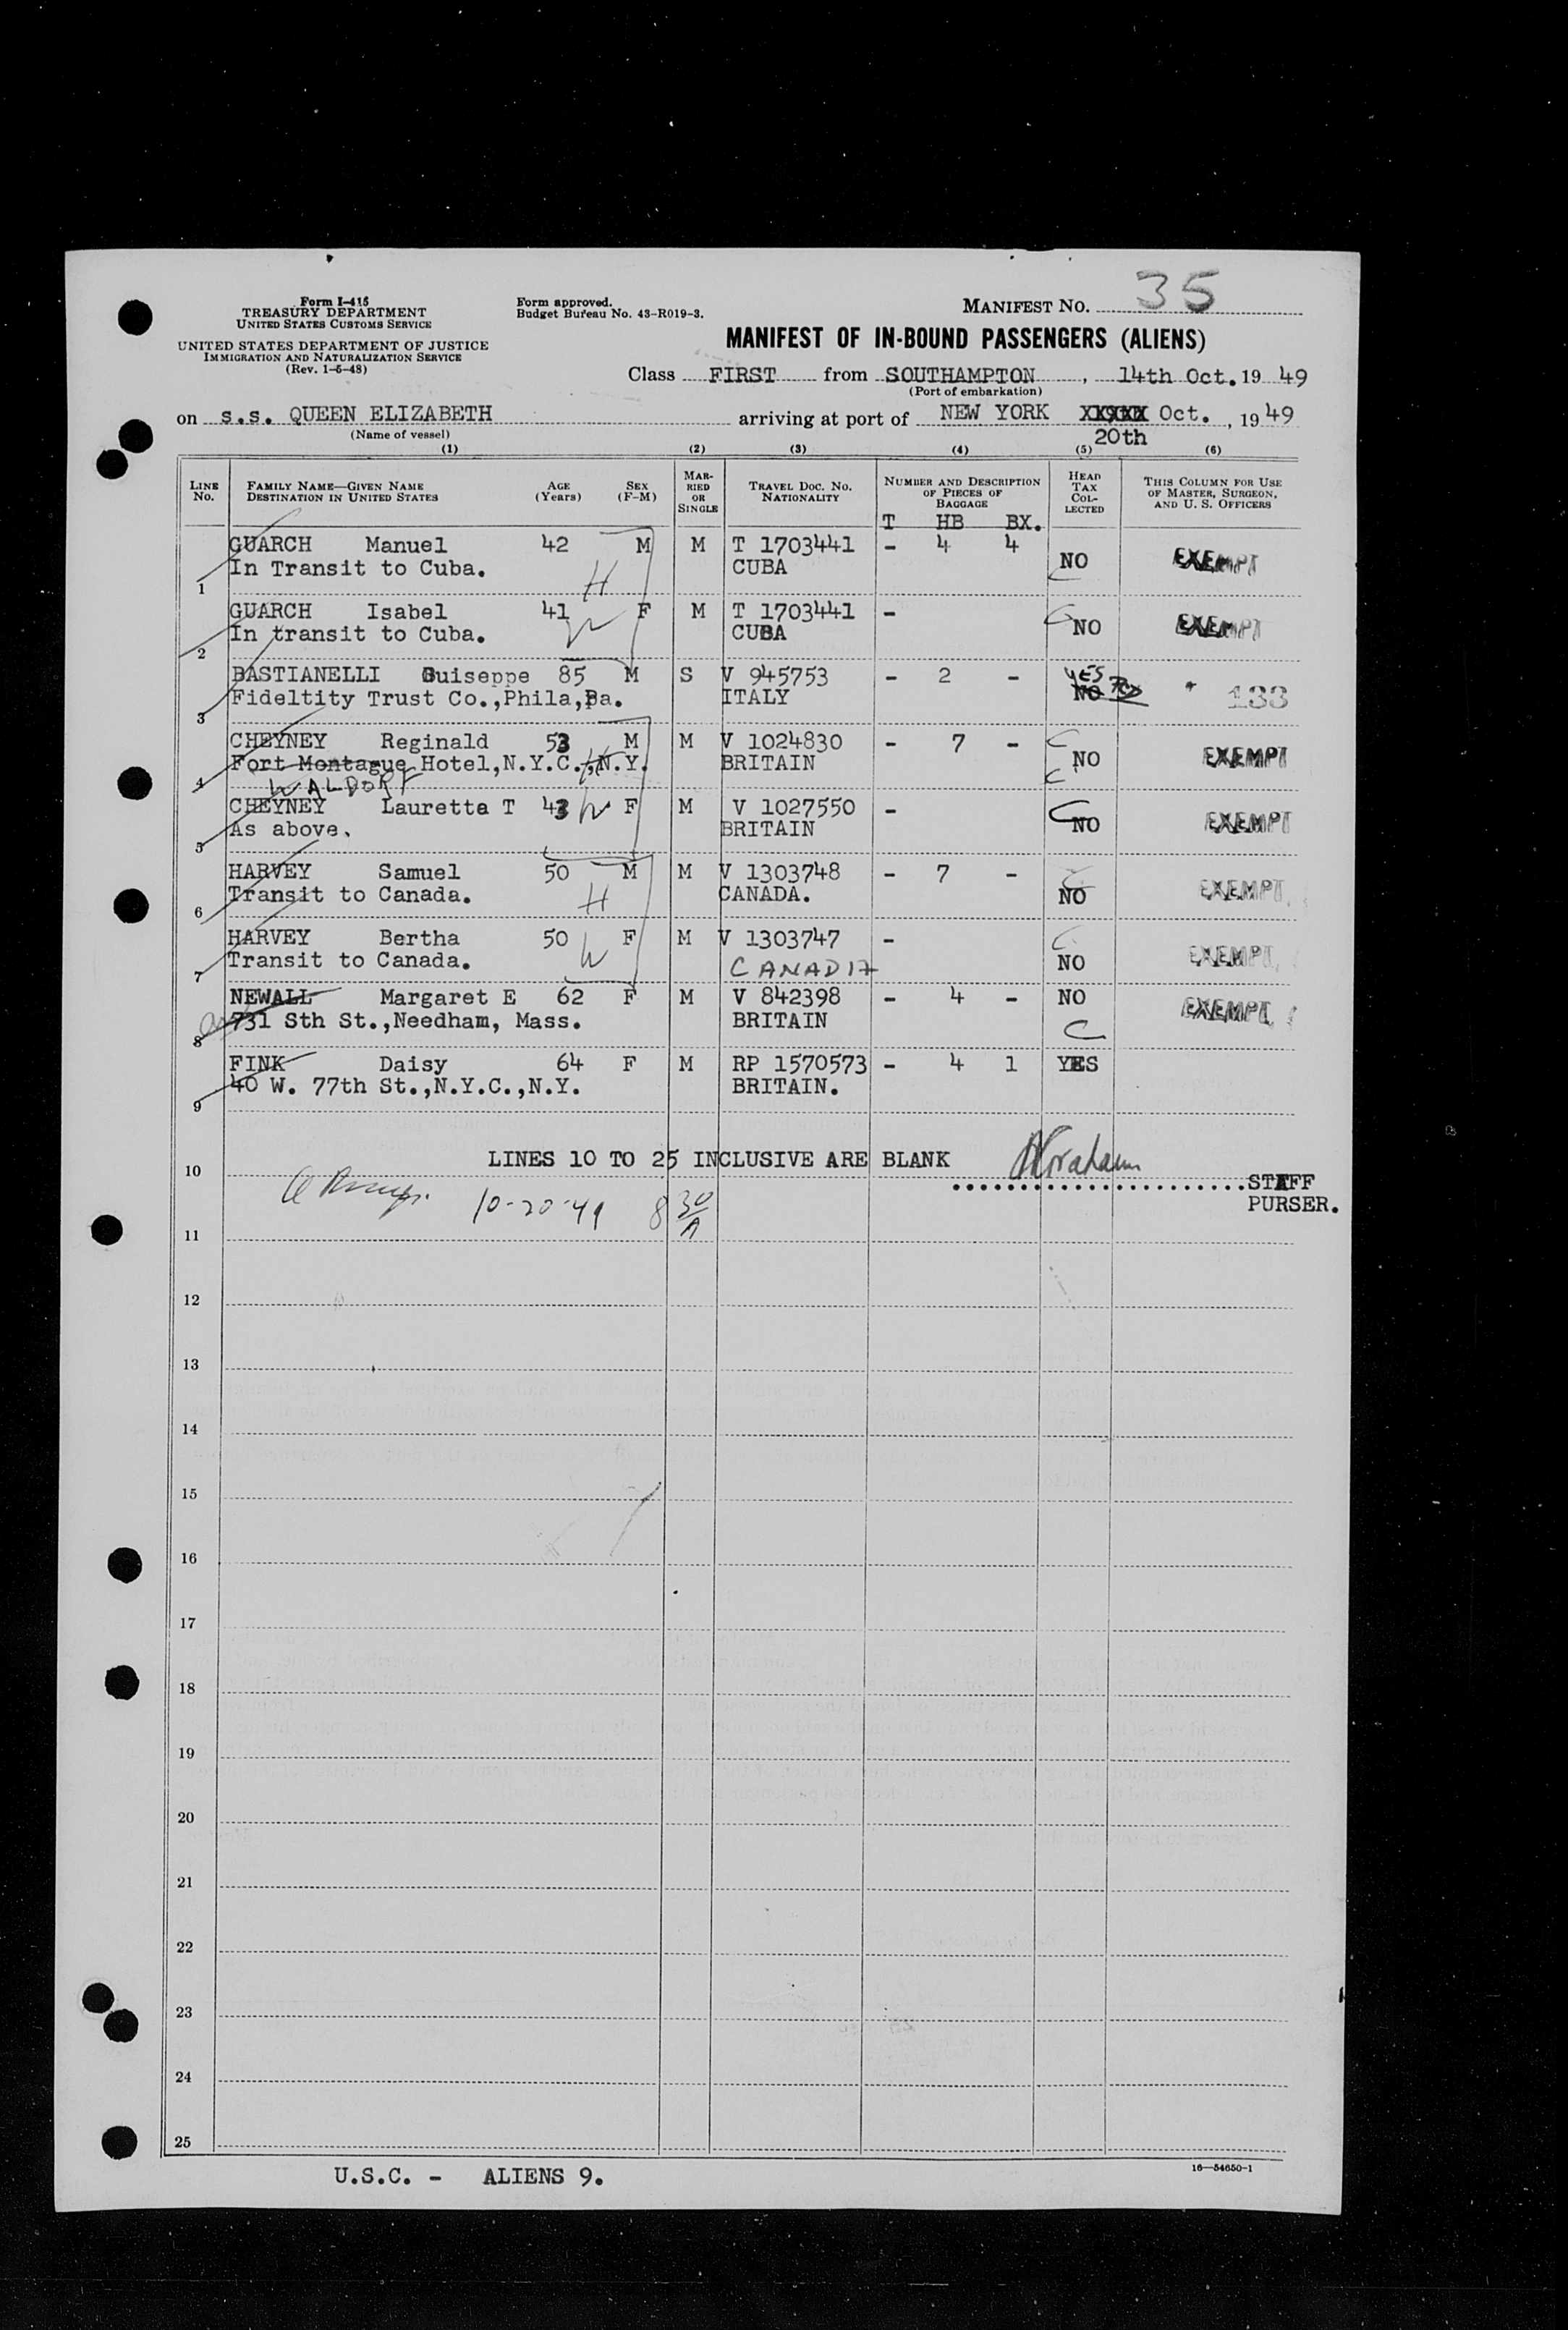 Form I-415
TREASURY DEPARTMENT
UNITED STATES CUSTOMS SERVICE
UNITED STATES DEPARTMENT OF JUSTICE
IMMIGRATION AND NATURALIZATION SERVICE
(Rev. 1-5-48)
Form approved.
Budget Bureau No. 43-R019-3.
MANIFEST NO. 35
MANIFEST OF IN-BOUND PASSENGERS (ALIENS)
Class FIRST from SOUTHAMPTON, 14th Oct. 19 49
(Port of embarkation)
on s.s. QUEEN ELIZABETH arriving at port of NEW YORK Oct., 19 49
20th
(Name of vessel)
(1) (2) (3) (4) (5) (6)
LINE No. FAMILY NAME—GIVEN NAME DESTINATION IN UNITED STATES AGE (Years) SEX (F-M) MARRIED OR SINGLE TRAVEL DOC. NO. NATIONALITY NUMBER AND DESCRIPTION OF PIECES OF BAGGAGE HEAD TAX COLLECTED THIS COLUMN FOR USE OF MASTER, SURGEON, AND U. S. OFFICERS
T HB BX.
GUARCH Manuel 42 M M T 1703441 - 4 4 NO EXEMPT
1 In Transit to Cuba. H CUBA
GUARCH Isabel 41 F M T 1703441 - NO EXEMPT
2 In transit to Cuba. W CUBA
BASTIANELLI Guiseppe 85 M S V 945753 - 2 - YES NO 133
3 Fideltity Trust Co.,Phila,Pa. ITALY
CHEYNEY Reginald 53 M M V 1024830 - 7 - C NO EXEMPT
4 Fort Montague Hotel,N.Y.C.,N.Y. H BRITAIN C
WALDORF
CHEYNEY Lauretta T 43 W F M V 1027550 - C NO EXEMPT
5 As above. BRITAIN
HARVEY Samuel 50 M M V 1303748 - 7 - C NO EXEMPT
6 Transit to Canada. H CANADA.
HARVEY Bertha 50 F M V 1303747 - C NO EXEMPT
7 Transit to Canada. W CANADIA
NEWALL Margaret E 62 F M V 842398 - 4 - NO EXEMPT
8 731 Sth St.,Needham, Mass. BRITAIN C
FINK Daisy 64 F M RP 1570573 - 4 1 YES
9 40 W. 77th St.,N.Y.C.,N.Y. BRITAIN.
10 LINES 10 TO 25 INCLUSIVE ARE BLANK
STAFF
PURSER.
10-20-49 8 30/A
11
12
13
14
15
16
17
18
19
20
21
22
23
24
25
U.S.C. - ALIENS 9.
16—54650-1